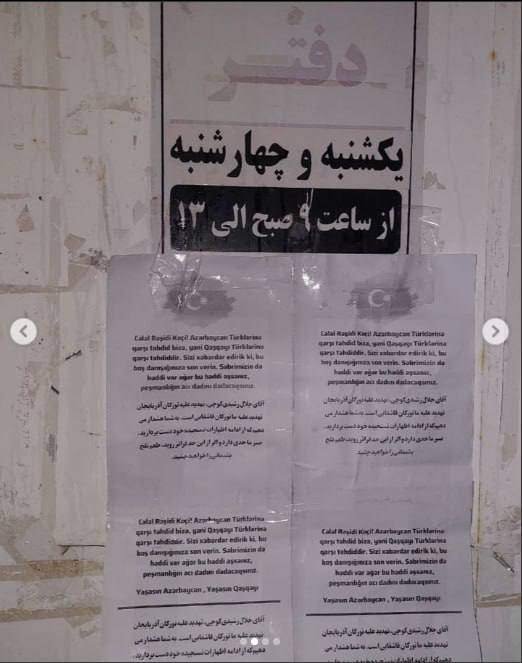 دفتر
یکشنبه و چهارشنبه
از ساعت ۹ صبح الی ۱۳
Cəlal Rəşidi Koçi! Azərbaycan Türklərinə
qarşı təhdid bizə, yəni Qaşqayı Türklərinə
qarşı təhdiddir. Sizi xəbərdar edirik ki, bu
boş danışığınıza son verin. Səbrimizin də
həddi var əgər bu həddi aşsanız,
peşmanlığın acı dadını dadacaqsınız.
آقای جلال رشیدی کوچی، تهدید علیه تورکان آذربایجان
تهدید علیه ما تورکان قاشقایی است. به شما هشدار می
دهیم که از ادامه اظهارات نسنجیده خود دست بردارید.
صبر ما حدی دارد و اگر از این حد فراتر روید، طعم تلخ
پشیمانی را خواهید چشید.
Cəlal Rəşidi Koçi! Azərbaycan Türklərinə
qarşı təhdid bizə, yəni Qaşqayı Türklərinə
qarşı təhdiddir. Sizi xəbərdar edirik ki, bu
boş danışığınıza son verin. Səbrimizin də
həddi var əgər bu həddi aşsanız,
peşmanlığın acı dadını dadacaqsınız.
آقای جلال رشیدی کوچی، تهدید علیه تورکان آذربایجان
تهدید علیه ما تورکان قاشقایی است. به شما هشدار می
دهیم که از ادامه اظهارات نسنجیده خود دست بردارید.
صبر ما حدی دارد و اگر از این حد فراتر روید، طعم تلخ
پشیمانی را خواهید چشید.
Cəlal Rəşidi Koçi! Azərbaycan Türklərinə
qarşı təhdid bizə, yəni Qaşqayı Türklərinə
qarşı təhdiddir. Sizi xəbərdar edirik ki, bu
boş danışığınıza son verin. Səbrimizin də
həddi var əgər bu həddi aşsanız,
peşmanlığın acı dadını dadacaqsınız.
Yaşasın Azərbaycan , Yaşasın Qaşqayı
آقای جلال رشیدی کوچی، تهدید علیه تورکان آذربایجان
تهدید علیه ما تورکان قاشقایی است. به شما هشدار می
دهیم که از ادامه اظهارات نسنجیده خود دست بردارید.
Cəlal Rəşidi Koçi! Azərbaycan Türklərinə
qarşı təhdid bizə, yəni Qaşqayı Türklərinə
qarşı təhdiddir. Sizi xəbərdar edirik ki, bu
boş danışığınıza son verin. Səbrimizin də
həddi var əgər bu həddi aşsanız,
peşmanlığın acı dadını dadacaqsınız.
Yaşasın Azərbaycan , Yaşasın Qaşqayı
آقای جلال رشیدی کوچی، تهدید علیه تورکان آذربایجان
تهدید علیه ما تورکان قاشقایی است. به شما هشدار می
دهیم که از ادامه اظهارات نسنجیده خود دست بردارید.